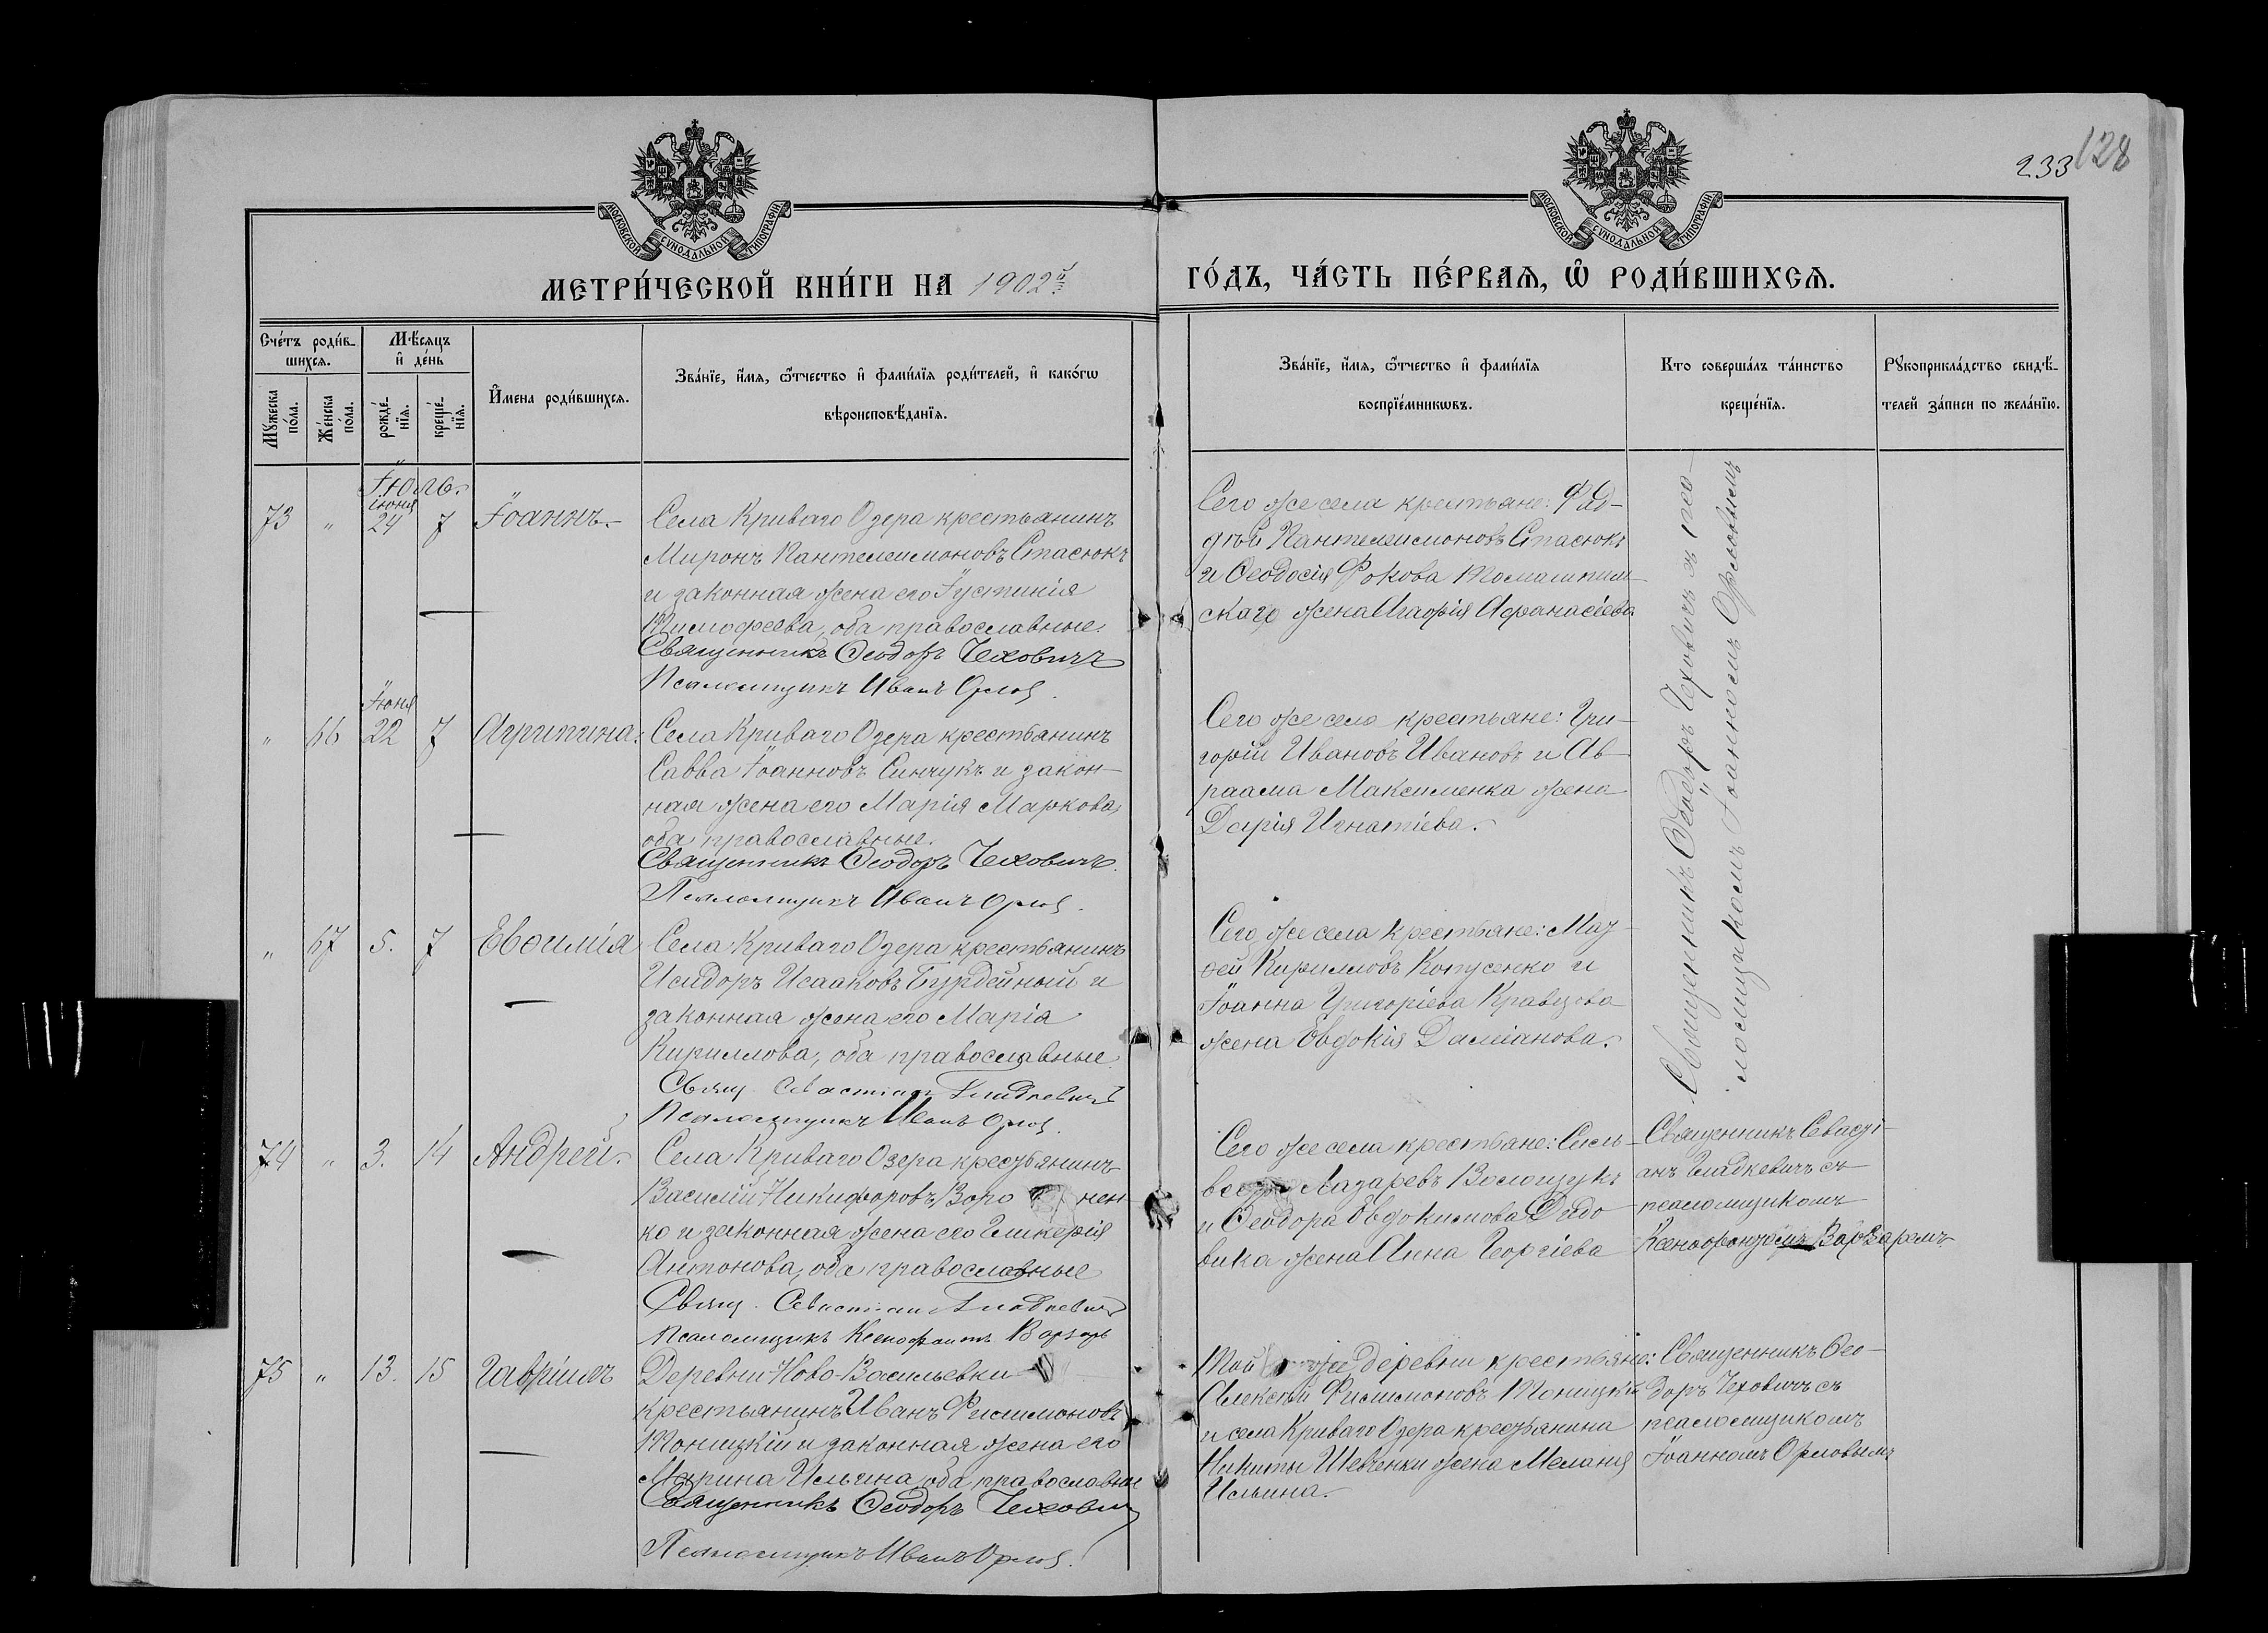 233 128
МОСКОВСКОЙ СѴНОДАЛЬНОЙ ТИПОГРАФІИ
МОСКОВСКОЙ СѴНОДАЛЬНОЙ ТИПОГРАФІИ
МЕТРИ́ЧЕСКОЙ КНИ́ГИ НА 1902й ГО́ДЪ, ЧА́СТЬ ПЕ́РВАѦ, Ѡ҆ РОДИ́ВШИХСѦ.
Сче́тъ роди́в-
шихсѧ.
Мꙋжеска по́ла.
Же́нска по́ла.
Мѣ́сѧцъ
и҆ де́нь
рожде́-
нїѧ.
креще́-
нїѧ.
И҆́мена роди́вшихсѧ.
Зва́нїе, и҆́мѧ, ѻ҆́тчество и҆ фами́лїѧ роди́телей, и҆ како́гѡ
вѣроисповѣ́данїѧ.
Зва́нїе, и҆́мѧ, ѻ҆́тчество и҆ фами́лїѧ
воспрїе́мникѡвъ.
Кто соверша́лъ та́инство
креще́нїѧ.
Рꙋкоприкла́дство свидѣ́-
телей за́писи по жела́нїю.
Іюль.
іюня
73 " 24 7 Іоаннъ.
Села Криваго Озера крестьянинъ
Миронъ Пантелеимоновъ Стасюкъ
и законная жена его Іустинія
Тимофеева, оба православные.
Священникъ Ѳеодоръ Чеховичъ
Псаломщикъ Иванъ Орлов.
Сего же села крестьяне: Фад-
дѣй Пантелеимоновъ Стасюкъ
и Ѳеодосія Фокова Томашпол-
скаго жена Агафія Афанасіева
Священникъ Ѳеодоръ Чеховичъ съ пса-
ломщикомъ Іоанномъ Орловымъ
Іюня
" 66 22 7 Агрипина.
Села Криваго Озера крестьянинъ
Савва Іоанновъ Синчукъ и закон-
ная жена его Марія Маркова,
оба православные.
Священникъ Ѳеодоръ Чеховичъ.
Псаломщикъ Иванъ Орлов.
Сего же села крестьяне: Гри-
горій Ивановъ Ивановъ и Ав-
раама Максименка жена
Дарія Игнатіева.
" 67 5. 7 Евѳимія
Села Криваго Озера крестьянинъ
Исидоръ Исааковъ Бурдейный и
законная жена его Марія
Кириллова, оба православные.
Свящ. Севастіанъ Гладкевичъ
Псаломщикъ Иванъ Орлов.
Сего же села крестьяне:
Кирилловъ Копусенко и
Іоанна Григоріева Кравцова
жена Евдокія Даміанова.
74 " 3. 14 Андрей.
Села Криваго Озера крестьянинъ
Василій Никифоровъ Воро нен-
ко и законная жена его Гликерія
Антонова, оба православные
Свящ. Севастіан Гладкевичъ
Псаломщикъ Ксенофонтъ Варзарь
Сего же села крестьяне: Силь-
вестръ Лазаревъ Волощукъ
и Ѳеодора Евдокимова Дидо-
вика жена Анна Георгіева
Священникъ Севасті-
анъ Гладкевичъ съ
псаломщикомъ
Ксенофонтомъ Варзаремъ
75 " 13. 15 Гавріилъ
Деревни Ново-Васильевки
крестьянинъ Иванъ Филимоновъ
Тоницкій и законная жена его
Марина Ильина, оба православные
Священникъ Ѳеодоръ Чехович
Псаломщикъ Иванъ Орлов.
Той же деревни крестьяне:
Алексѣй Филимоновъ Тоницкій
и села Криваго Озера крестьянина
Никиты Шевченки жена Меланія
Ильина.
Священникъ Ѳео-
доръ Чеховичъ съ
псаломщикомъ
Іоанномъ Орловымъ